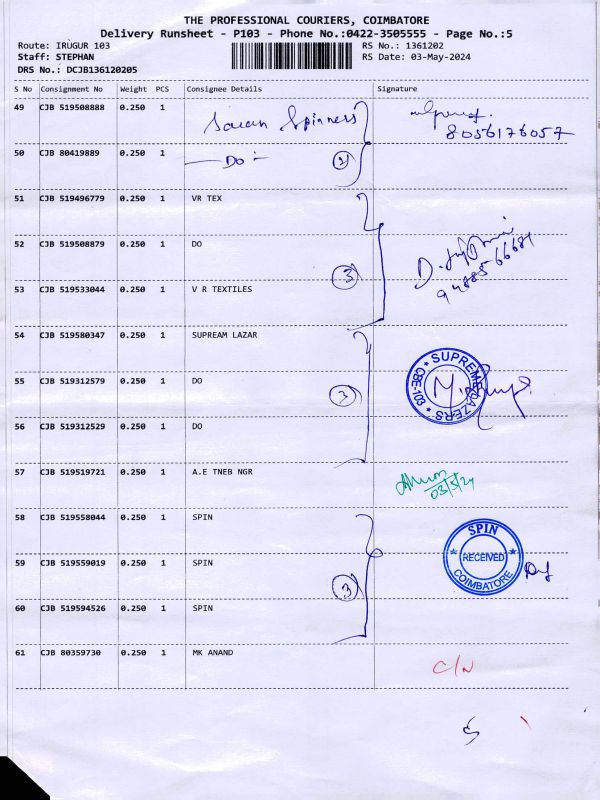 THE PROFESSIONAL COURIERS, COIMBATORE
Delivery Runsheet - P103 - Phone No.:0422-3505555 - Page No.:5
Route: IRUGUR 103 RS No.: 1361202
Staff: STEPHAN RS Date: 03-May-2024
DRS No.: DCJB136120205
S No Consignment No Weight PCS Consignee Details Signature
49 CJB 519508888 0.250 1 Saran Spinners
8056176057
50 CJB 80419889 0.250 1 Do 2
51 CJB 519496779 0.250 1 VR TEX
52 CJB 519508879 0.250 1 DO
53 CJB 519533044 0.250 1 V R TEXTILES 3
54 CJB 519580347 0.250 1 SUPREAM LAZAR
55 CJB 519312579 0.250 1 DO 3 SUPREME LAZERS CBE-103
56 CJB 519312529 0.250 1 DO
57 CJB 519519721 0.250 1 A.E TNEB NGR
03/5/24
58 CJB 519558044 0.250 1 SPIN
59 CJB 519559019 0.250 1 SPIN 3 SPIN RECEIVED COIMBATORE
60 CJB 519594526 0.250 1 SPIN
61 CJB 80359730 0.250 1 MK ANAND C/N